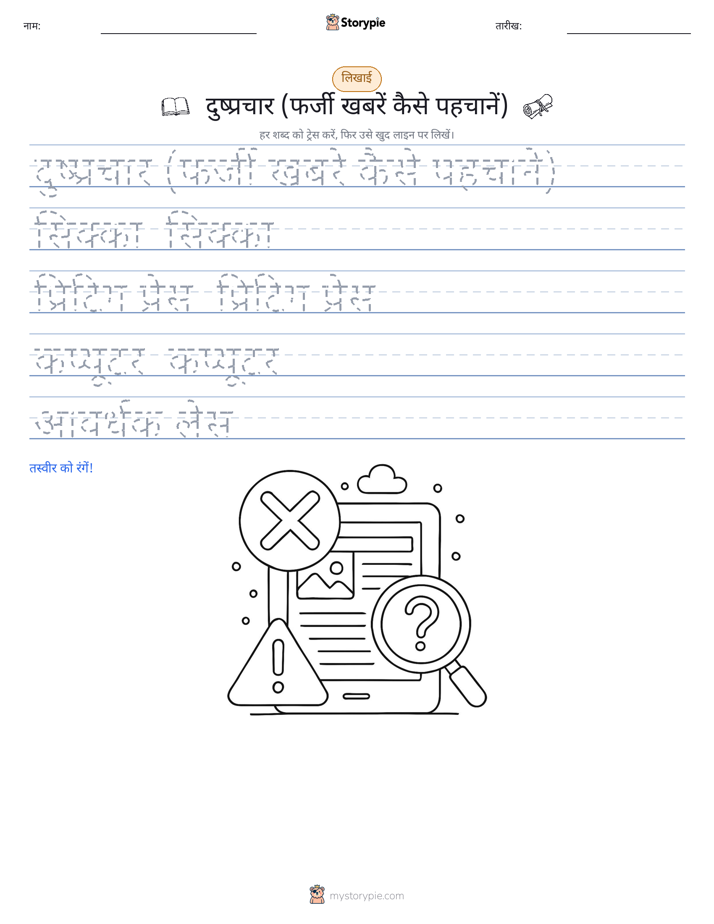 नाम:
Storypie
तारीख:
लिखाई
दुष्प्रचार (फर्जी खबरें कैसे पहचानें)
हर शब्द को ट्रेस करें, फिर उसे खुद लाइन पर लिखें।
दुष्प्रचार (फर्जी खबरें कैसे पहचानें)
सिक्का सिक्का
प्रिंटिंग प्रेस प्रिंटिंग प्रेस
कंप्यूटर कंप्यूटर
आवर्धक लेंस
तस्वीर को रंगें!
?
!
mystorypie.com